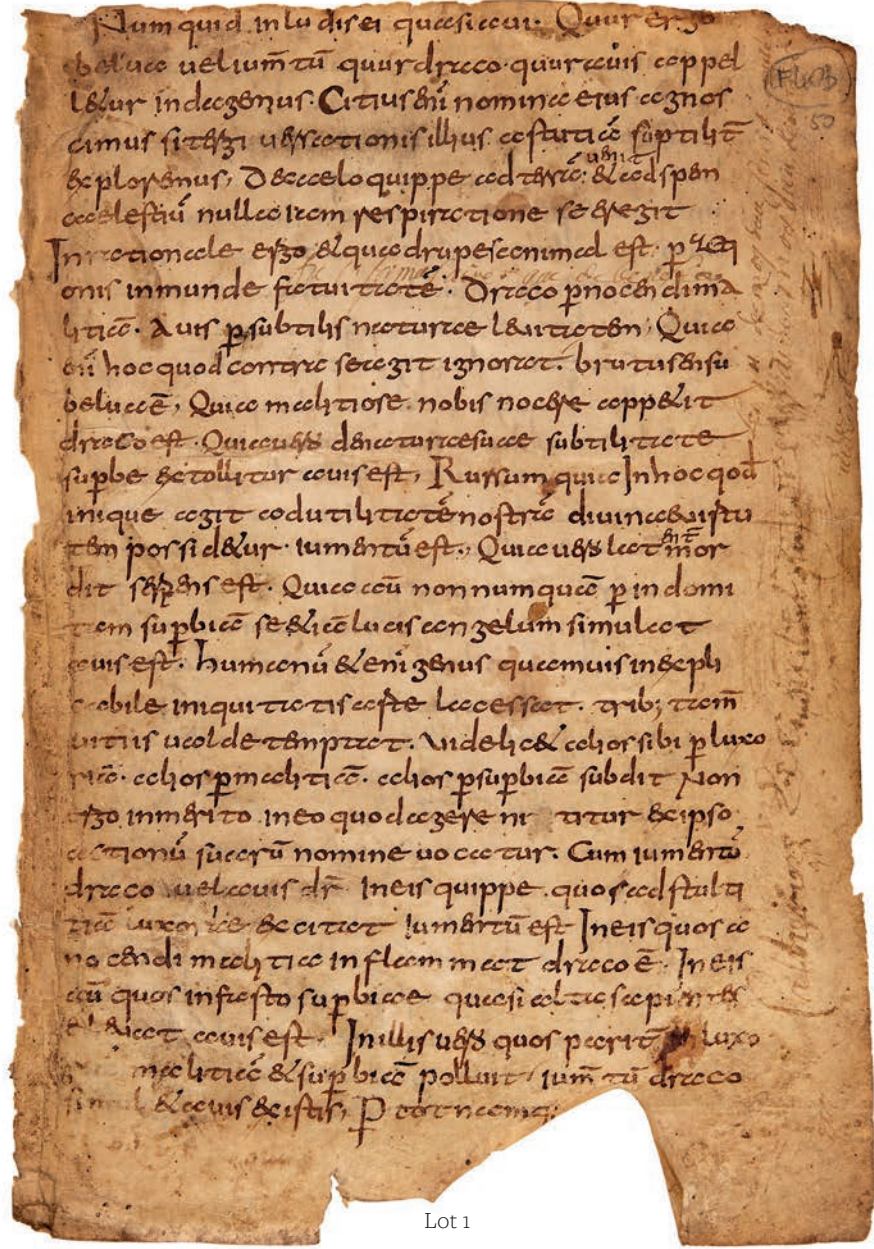 Num quid inludis ei quasi avi. Quur ergo
belua vel ium̄tū quur draco quur avis appel
letur indagemus. Citius eni nomina eius agnos
cimus si tergi versationis illius astutiā suptilit̄
exploremus, De caelo quippe ad terrā venit et ad spem
caelestiū nulla iam respiratione se eregit
Inrationale ergo et quadrupes animal est p̱ acti
onis inmunde fatuitatē. Draco p̱ nocendi ma
litiā. Avis p̱ subtilis naturae levitatem, Quia
eni hoc quod contra se agit ignorat. bruto sensu
belua ē, Quia malitiose nobis nocere appetit
draco est. Quia vero de naturae suae subtilitate
sup̱be extollitur avis est, Rursum quia In hoc qod
inique agit ad utilitatē nostrā divina virtu
tem possidetur. iumentū est., Quia vero latenter mor
dit serpens est. Quia aū non numquā p̱ indomi
tam sup̱biā se etiā lucis angelum simulat
avis est. humanū etenī genus quamuis inexpli
cabile iniquitatis arte lacessat. trib; tam̄
vitiis valde temptat. Videlicet alios sibi p̱ luxo
riā. alios p̱ malitiā. alios p̱ sup̱biā subdit Non
ergo inmerito in eo quod agere nititur ex ipso
actionū suarū nomine vocatur. Cum iumentū
draco vel avis dr̄ In eis quippe quos ad stulti
tiā luxoriae excitat Iumentū est In eis quos a
nocendi malitia inflammat draco ē. In eis
aū quos in fasto sup̱biae quasi alta sapientes
elevat avis est. In illis vero quos pariter in luxo
malitiā et sup̱biā polluit, ium̄tū draco
simul et avis existit, P tot namq;
Lot 1